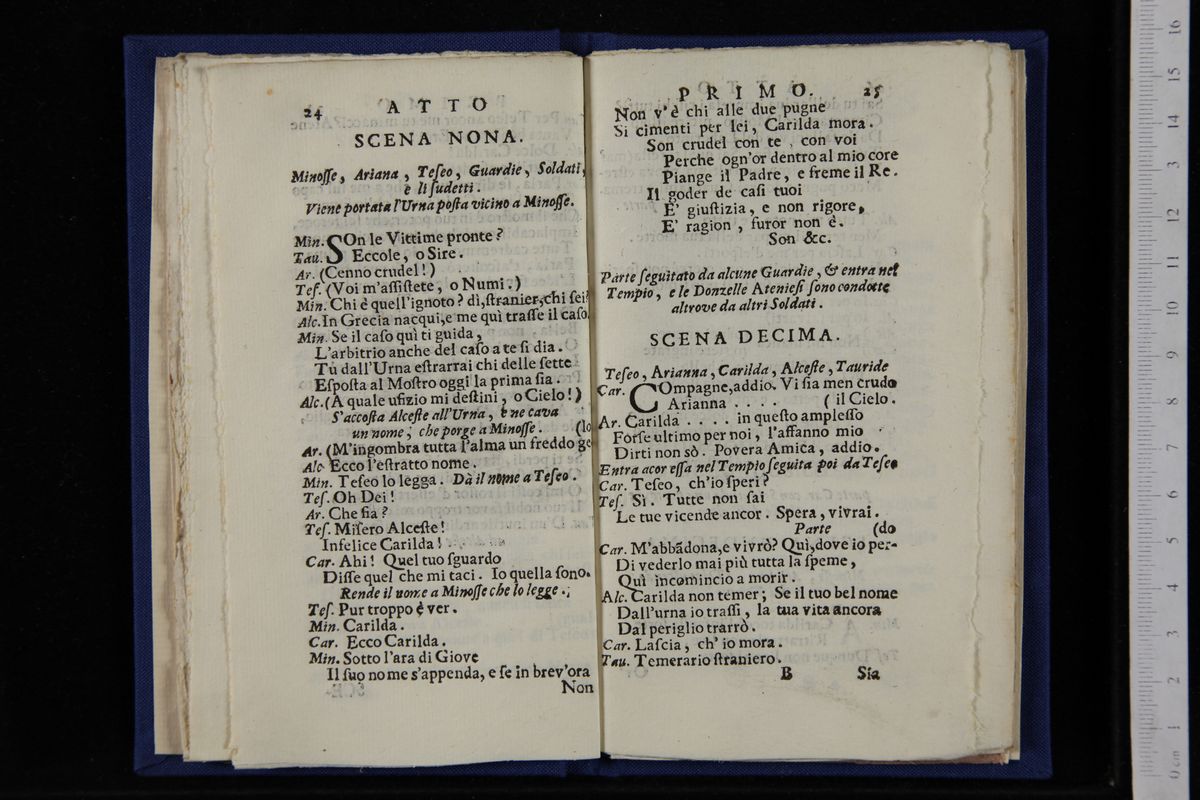 24 ATTO
SCENA NONA.
Minoſſe, Ariana, Teſeo, Guardie, Soldati,
e li ſudetti.
Viene portata l'Urna poſta vicino a Minoſſe.
Min. SOn le Vittime pronte?
Tau. Eccole, o Sire.
Ar. (Cenno crudel!)
Teſ. (Voi m'aſſiſtete, o Numi.)
Min. Chi è quell'ignoto? dì, ſtranier, chi ſei?
Alc. In Grecia nacqui, e me quì traſſe il caſo.
Min. Se il caſo quì ti guida,
L'arbitrio anche del caſo a te ſi dia.
Tù dall'Urna eſtrarrai chi delle ſette
Eſpoſta al Moſtro oggi la prima ſia.
Alc. (A quale ufizio mi deſtini, o Cielo!)
S'accoſta Alceſte all'Urna, e ne cava
un nome; che porge a Minoſſe. (lo
Ar. (M'ingombra tutta l'alma un freddo ge
Alc. Ecco l'eſtratto nome.
Min. Teſeo lo legga. Dà il nome a Teſeo.
Teſ. Oh Dei!
Ar. Che ſia?
Teſ. Miſero Alceſte!
Infelice Carilda!
Car. Ahi! Quel tuo ſguardo
Diſſe quel che mi taci. Io quella ſono.
Rende il nome a Minoſſe che lo legge.
Teſ. Pur troppo è ver.
Min. Carilda.
Car. Ecco Carilda.
Min. Sotto l'ara di Giove
Il ſuo nome s'appenda, e ſe in brev'ora
Non
PRIMO. 25
Non v'è chi alle due pugne
Si cimenti per lei, Carilda mora.
Son crudel con te, con voi
Perche ogn'or dentro al mio core
Piange il Padre, e freme il Re.
Il goder de caſi tuoi
E' giuſtizia, e non rigore,
E' ragion, furor non è.
Son &c.
Parte ſeguitato da alcune Guardie, & entra nel
Tempio, e le Donzelle Atenieſi ſono condotte
altrove da altri Soldati.
SCENA DECIMA.
Teſeo, Arianna, Carilda, Alceſte, Tauride
Car. COmpagne, addio. Vi ſia men crudo
Arianna .... ( il Cielo.
Ar. Carilda .... in queſto ampleſſo
Forſe ultimo per noi, l'affanno mio
Dirti non sò. Povera Amica, addio.
Entra acor eſſa nel Tempio ſeguita poi da Teſeo
Car. Teſeo, ch'io ſperi?
Teſ. Sì. Tutte non ſai
Le tue vicende ancor. Spera, vivrai.
Parte (do
Car. M'abbãdona, e vivrò? Quì, dove io per-
Di vederlo mai più tutta la ſpeme,
Quì incomincio a morir.
Alc. Carilda non temer; Se il tuo bel nome
Dall'urna io traſſi, la tua vita ancora
Dal periglio trarrò.
Car. Laſcia, ch'io mora.
Tau. Temerario ſtraniero.
B Sia
0 cm 1 2 3 4 5 6 7 8 9 10 11 12 13 14 15 16